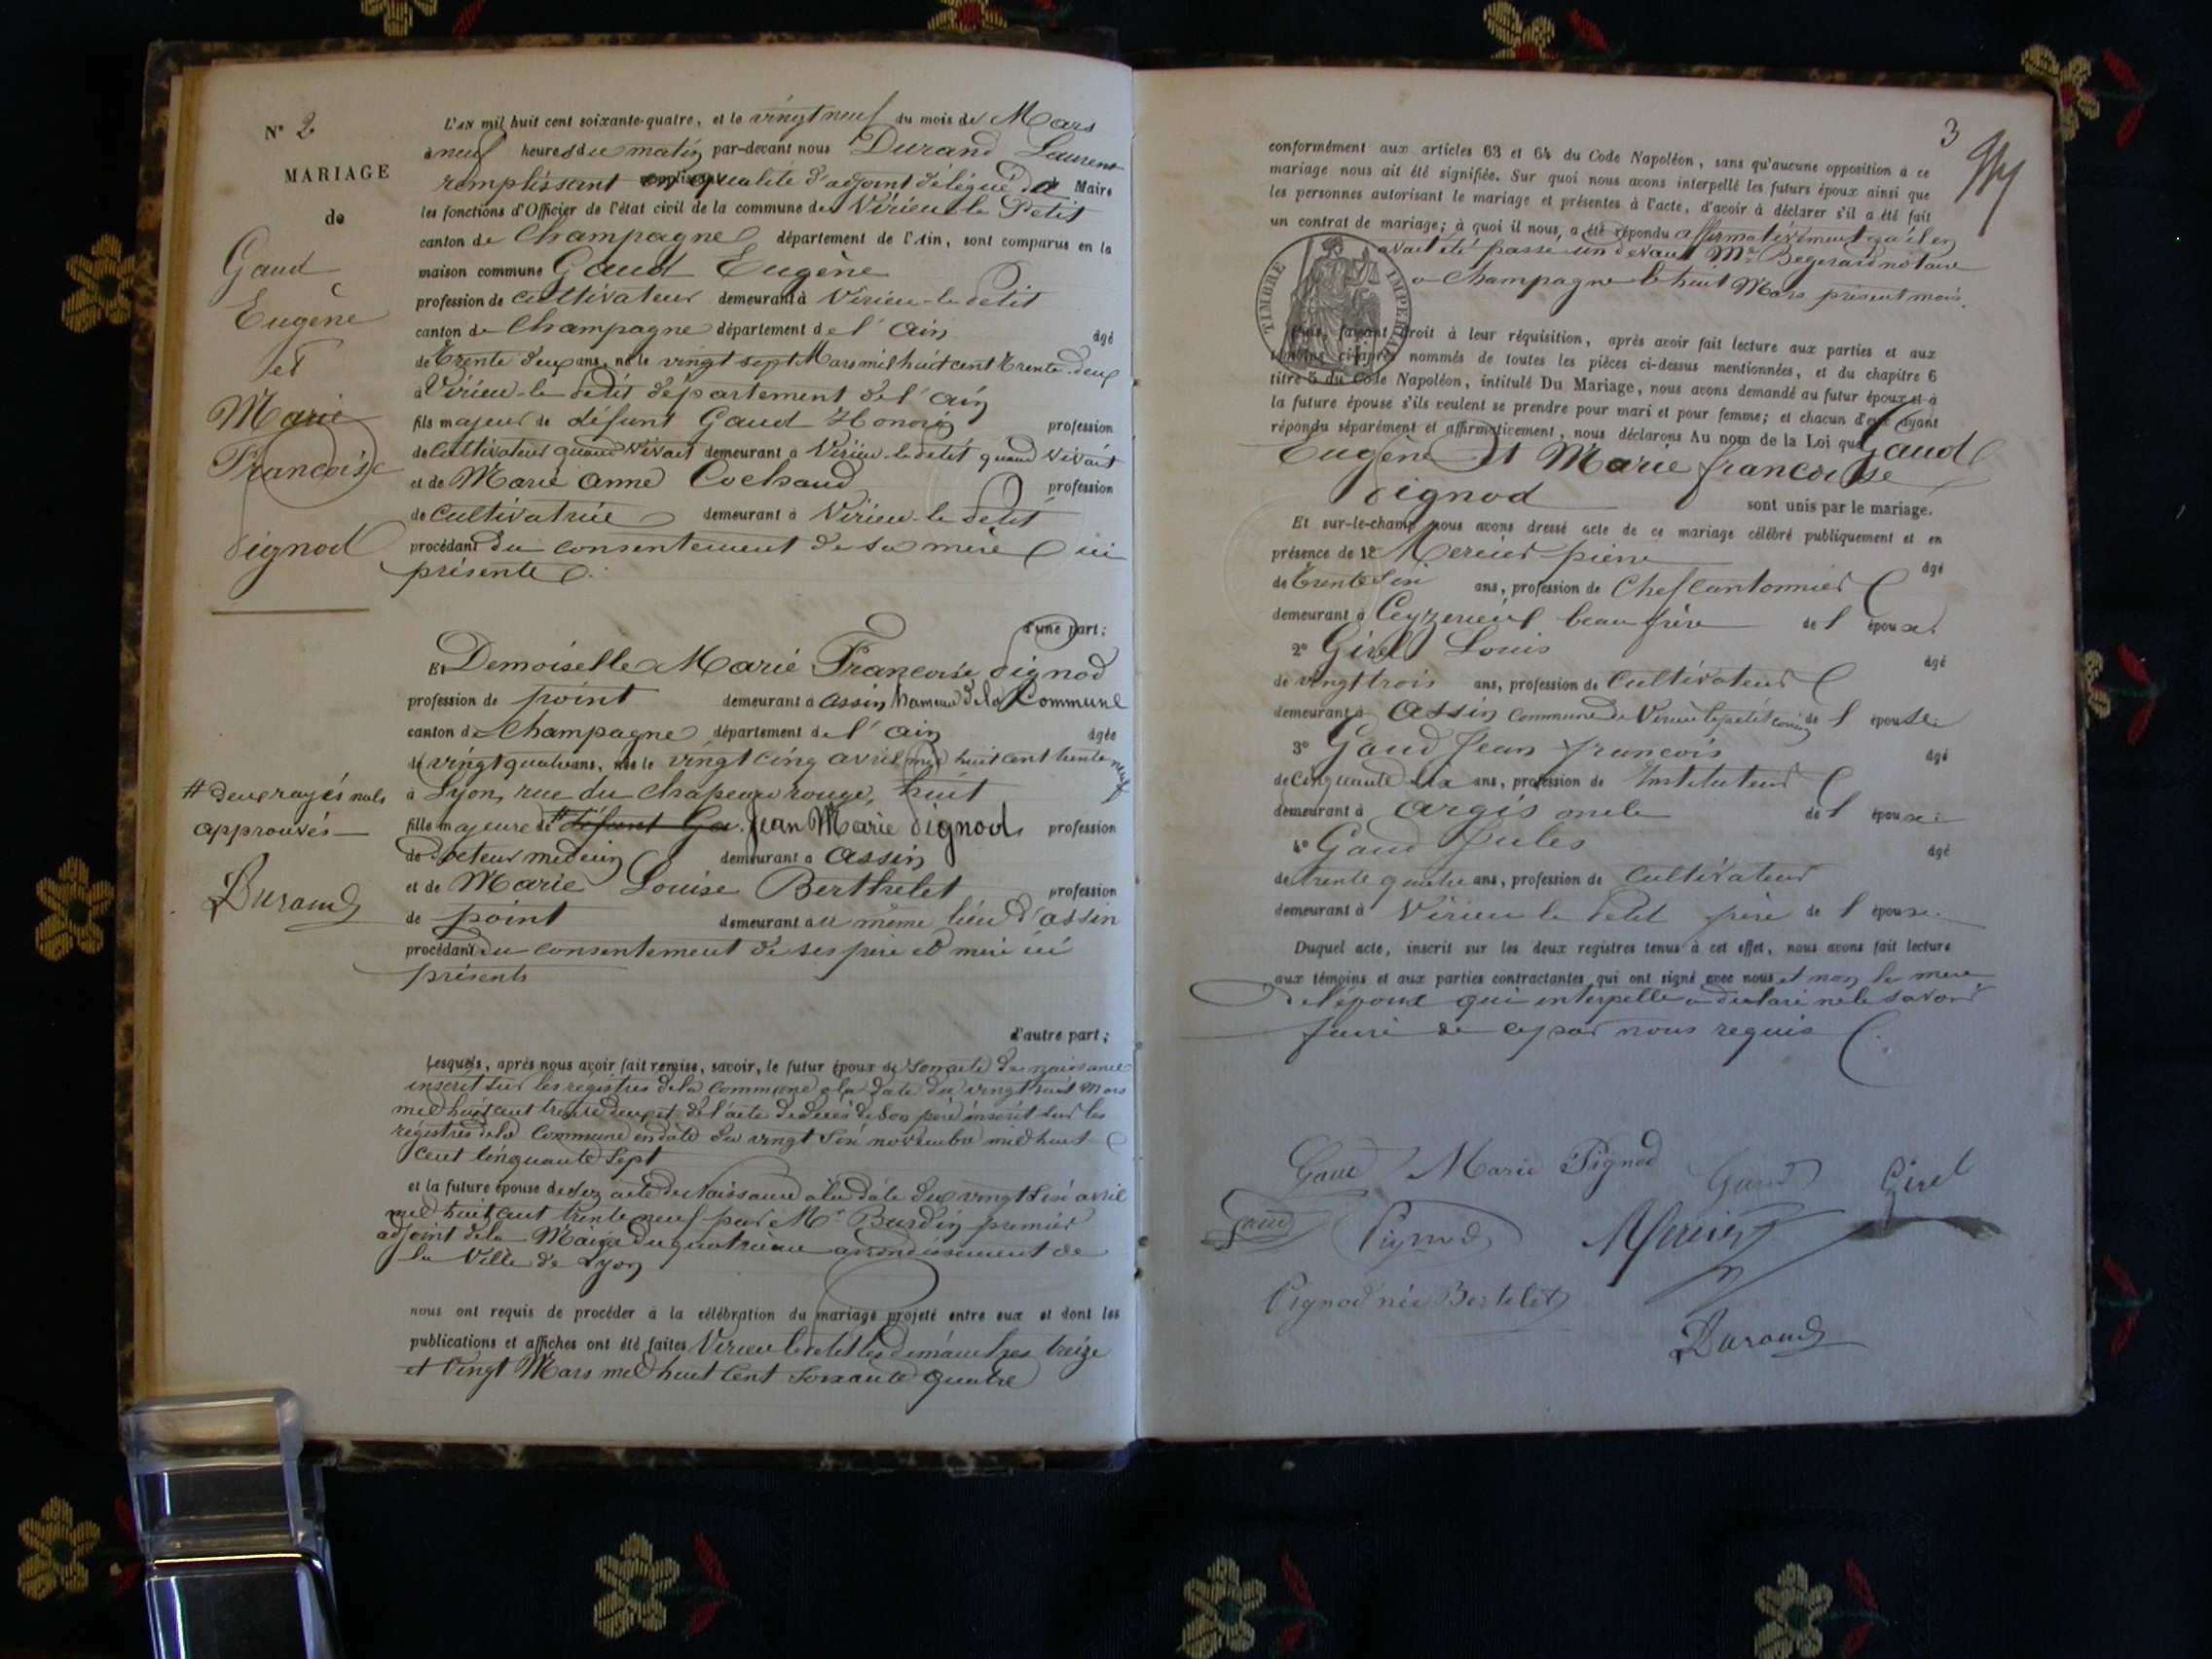 N° 2
MARIAGE
de
Gaud
Eugène
et
Marie
Françoise
Pignod
L'AN mil huit cent soixante-quatre, et le vingt neuf du mois de Mars
à neuf heures du matin par-devant nous Durand Laurent
remplissant en qualité d'adjoint délégué Maire
les fonctions d'Officier de l'état civil de la commune de Virieu le Petit
canton de Champagne département de l'Ain, sont comparus en la
maison commune Gaud Eugène
profession de cultivateur demeurant à Virieu-le Petit
canton de Champagne département de l'ain âgé
de Trente deux ans, né le vingt sept Mars mil huit cent trente-deux
à Virieu-le Petit département de l'ain
fils majeur de défunt Gaud Honoré profession
de Cultivateur quand vivait demeurant à Virieu-le Petit quand vivait
et de Marie Anne Cochaud profession
de cultivatrice demeurant à Virieu-le Petit
procédant du consentement de sa mère ici
présente
d'une part;
Et Demoiselle Marie Françoise Pignod
profession de point demeurant à assin hameau de la Commune
canton de Champagne département de l'ain âgée
de vingt quatre ans, née le vingt cinq avril mil huit cent trente neuf
à Lyon, rue du chapeau rouge, huit
# deux rayés nuls
approuvés
Durand
fille majeure de # défunt Ga. Jean Marie Pignod profession
de Docteur medecin demeurant à assin
et de Marie Louise Berthelet profession
de point demeurant au même lieu d'assin
procédant du consentement de ses père et mère ici
présents
d'autre part;
Lesquels, après nous avoir fait remise, savoir, le futur époux de son acte de naissance
inscrit sur les registres de la commune à la date du vingt huit Mars
mil huit cent trente deux et de l'acte de décès de son père inscrit sur les
registres de la Commune en date du vingt six novembre mil huit
cent cinquante sept
et la future épouse de son acte de Naissance à la date du vingt six avril
mil huit cent trente neuf par Mr Burdin premier
adjoint de la Mairie du quatrième arrondissement de
la Ville de Lyon
nous ont requis de procéder à la célébration du mariage projeté entre eux et dont les
publications et affiches ont été faites Virieu le Petit les dimanches treize
et vingt Mars mil huit Cent Soixante quatre
3
conformément aux articles 63 et 64 du Code Napoléon, sans qu'aucune opposition à ce
mariage nous ait été signifiée. Sur quoi nous avons interpellé les futurs époux ainsi que
les personnes autorisant le mariage et présentes à l'acte, d'avoir à déclarer s'il a été fait
un contrat de mariage; à quoi il nous a été répondu affirmativement qu'il en
avait été passé un devant Me notaire
à Champagne le huit Mars présent mois.
TIMBRE IMPERIAL
faisant droit à leur réquisition, après avoir fait lecture aux parties et aux
témoins ci-après nommés de toutes les pièces ci-dessus mentionnées, et du chapitre 6
titre 5 du Code Napoléon, intitulé Du Mariage, nous avons demandé au futur époux et à
la future épouse s'ils veulent se prendre pour mari et pour femme; et chacun d'eux ayant
répondu séparément et affirmativement, nous déclarons Au nom de la Loi que Gaud
Eugène Et Marie françoise
Pignod sont unis par le mariage.
Et sur-le-champ nous avons dressé acte de ce mariage célébré publiquement et en
présence de 1° Mercier pierre âgé
de Trente Six ans, profession de Chef cantonnier
demeurant à Ceyzerieu beau frère de l'époux.
2° Girel Louis âgé
de vingt trois ans, profession de Cultivateur
demeurant à Assin commune de Virieu le petit cousin de l'épouse.
3° Gaud Jean françois âgé
de cinquante six ans, profession de Instituteur
demeurant à Argis oncle de l'époux.
4° Gaud Jules âgé
de trente quatre ans, profession de Cultivateur
demeurant à Virieu le Petit frère de l'époux.
Duquel acte, inscrit sur les deux registres tenus à cet effet, nous avons fait lecture
aux témoins et aux parties contractantes qui ont signé avec nous et non la mère
de l'époux qui interpellée a déclaré ne le savoir
faire de ce par nous requis
Gaud Marie Pignod Gaud Girel
Gaud Pignod Mercier
Pignod née Bertelet
Durand